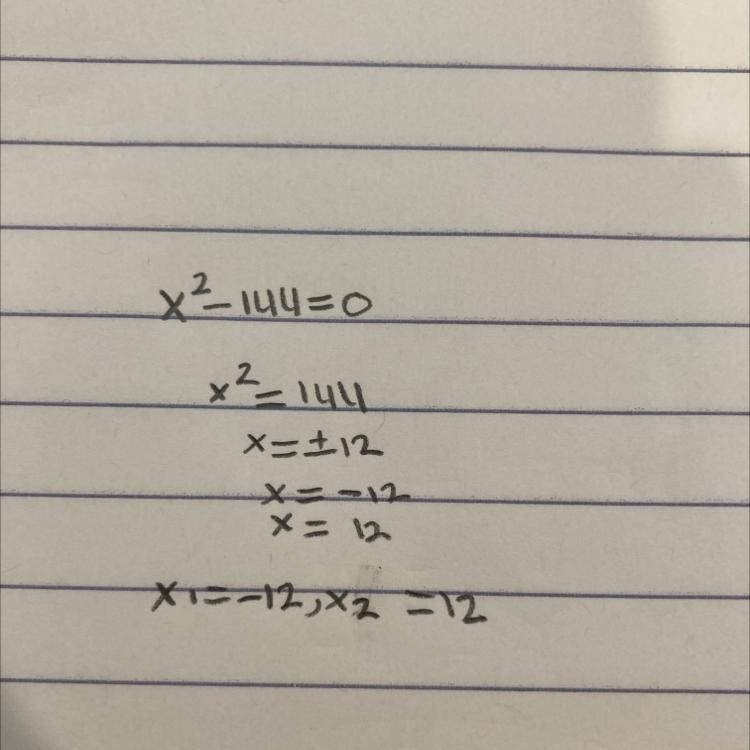 x²-144=0
x²=144
x=±12
x=-12
x= 12
x1=-12,x2 =12